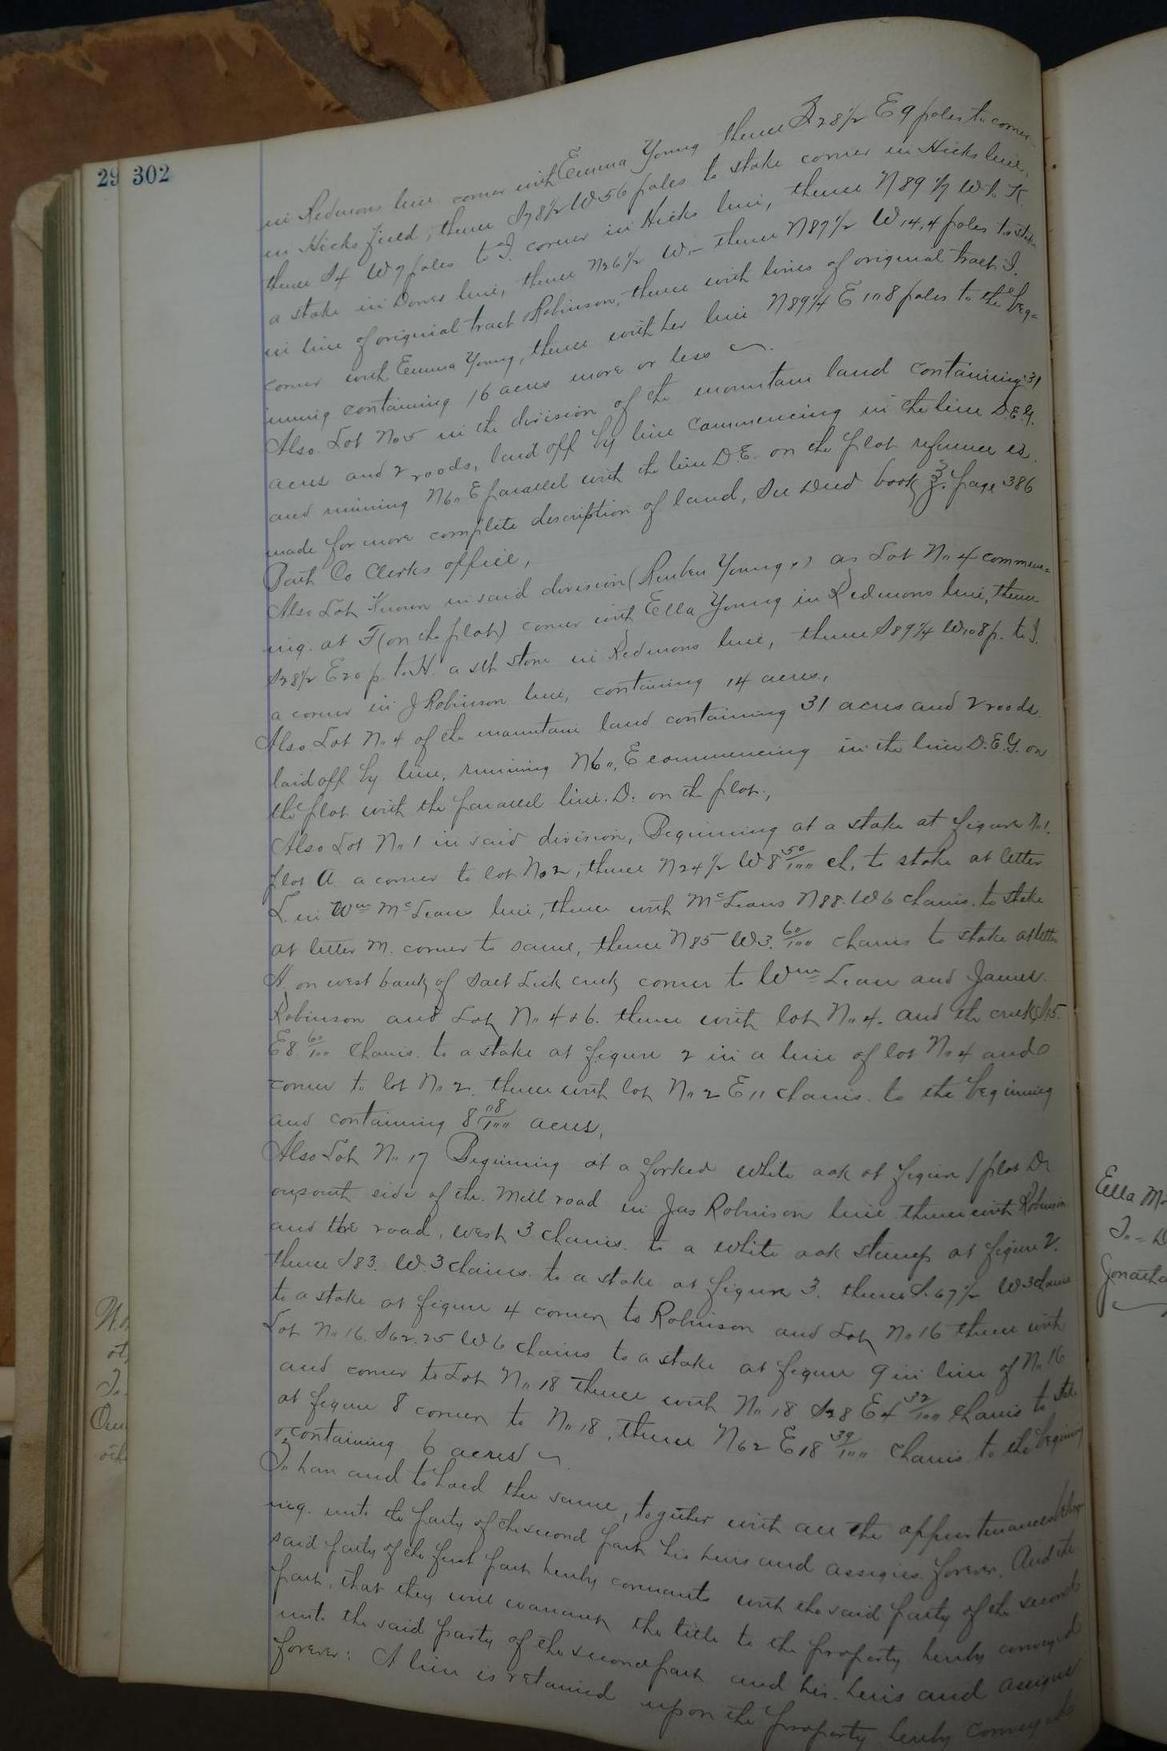 29 302
in Redmons line corner with Emma Young thence S 28 1/2 E 9 poles to corner
in Hicks field, thence S 78 1/2 W 56 poles to stake corner in Hicks line,
thence S 4 W 7 poles to I. corner in Hicks line, thence N 89 1/2 W to K
a stake in Dones line, thence N 26 1/2 W – thence N 87 1/2 W 14.4 poles to stake
in line of original tract Robinson, thence with lines of original tract J.
corner with Emma Young, thence with her line N 89 1/4 E 108 poles to the beg=
inning containing 16 acres more or less
Also Lot No 5 in the division of the mountain land containing 31
acres and 2 roods, laid off by line commencing in the line D.E.G.
and running N 60 E parallel with the line D.E. on the plot reference is
made for more complete description of land, See Deed book page 386
Bath Co Clerks office,
Also Lot Known in said division (Reuben Young,) as Lot No 4 commenc=
ing. at F (on the plot) corner with Ella Young in Redmons line, thence
S 28 1/2 E 20 p. to H. a set stone in Redmons line, thence S 89 1/4 W 108 p. to I.
a corner in J Robinson line, containing 14 acres,
Also Lot No 4 of the mountain land containing 31 acres and 2 roods.
laid off by line, running N 60, E commencing in the line D.E.G. on
the plot with the parallel line. D. on the plot,
Also Lot No 1 in said division, Beginning at a stake at figure No 1.
plot A a corner to lot No 2, thence N 24 1/2 W 8 50/100 ch, to stake at letter
L in Wm McLeans line, thence with McLeans N 88. W 6 chains. to stake
at letter M. corner to same, thence N 85 W 3. 60/100 chains to stake at letter
N, on west bank of Salt Lick creek corner to Wm Lean and James.
Robinson and Lot No 4 & 6. thence with lot No 4. and the creek S 15
E 8 60/100 chains. to a stake at figure 2 in a line of lot No 4 and
corner to lot No 2. thence with lot No 2 E 11 chains. to the beginning
and containing 8 08/100 acres,
Also Lot No 17 Beginning at a forked white oak at figure 1 plot D.
on south side of the. Mill road in Jas Robinson line thence with Robinson
and the road, west 3 chains. to a white oak stump at figure 2.
thence S 83. W. 3 chains. to a stake at figure 3. thence S. 67 1/2 W 3 chains
to a stake at figure 4 corner to Robinson and Lot No 16 thence with
Lot No 16. S 62.25 W 6 chains to a stake at figure 9 in line of No 16
and corner to Lot No 18 thence with No 18 S 28 E 4 32/100 chains to stake
at figure 8 corner to No 18, thence N 62 E 18 39/100 chains to the beginning
containing 6 acres
To have and to hold the same, together with all the appurtenances
ing. unto the party of the second part his heirs and assigns forever. And the
said party of the first part hereby covenants with the said party of the second
part, that they will warrant the title to the property hereby conveyed
unto the said party of the second part and his heirs and assigns
forever: A lien is retained upon the property hereby conveyed
Ella M
To = D